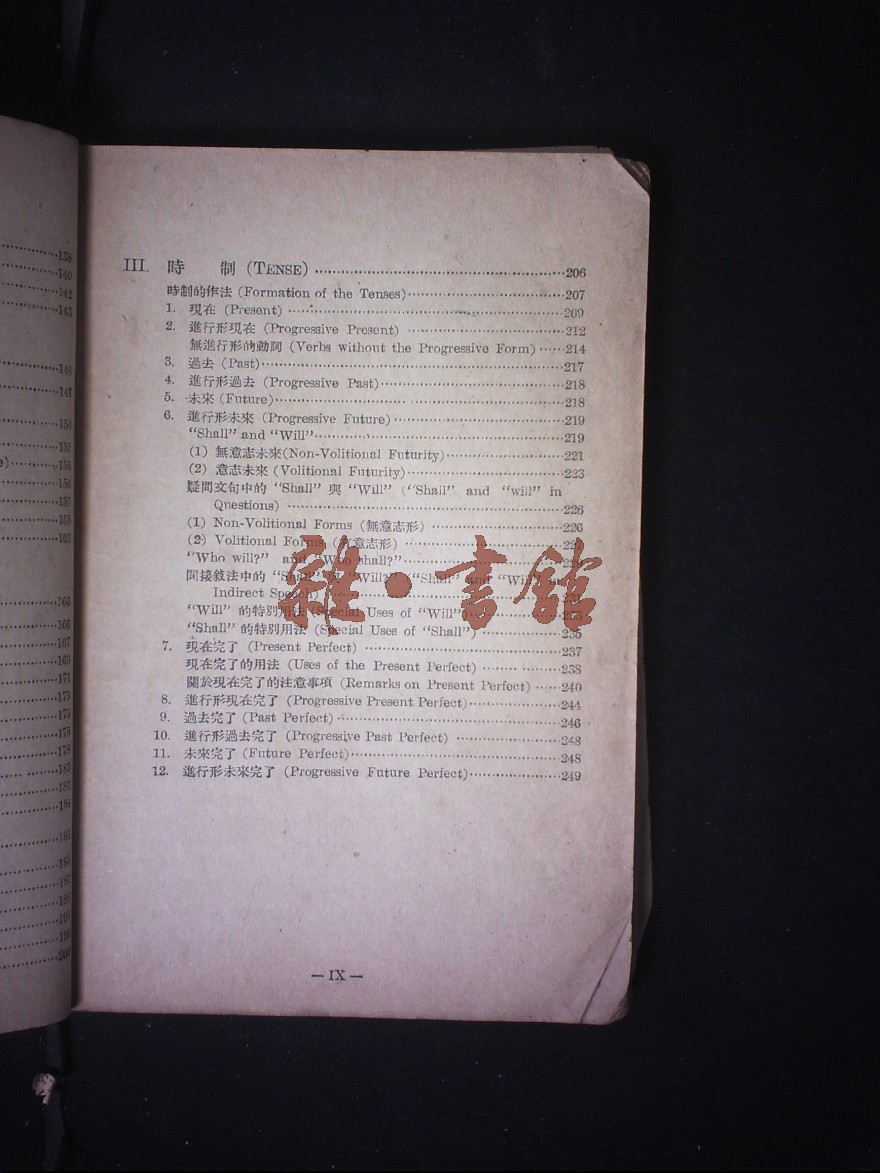 138
140
142
143
146
147
153
151
155
156
157
159
163
166
166
167
169
171
173
175
175
178
183
183
184
185
183
187
188
195
196
200
III. 時 制 (TENSE) 206
時制的作法 (Formation of the Tenses) 207
1. 現在 (Present) 209
2. 進行形現在 (Progressive Present) 212
無進行形的動詞 (Verbs without the Progressive Form) 214
3. 過去 (Past) 217
4. 進行形過去 (Progressive Past) 218
5. 未來 (Future) 218
6. 進行形未來 (Progressive Future) 219
"Shall" and "Will" 219
(1) 無意志未來(Non-Volitional Futurity) 221
(2) 意志未來 (Volitional Futurity) 223
疑問文句中的 "Shall" 與 "Will" ("Shall" and "will" in
Questions) 226
(1) Non-Volitional Forms (無意志形) 226
(2) Volitional Forms (有意志形) 227
"Who will?" and "Who shall?"
間接敘法中的 "Shall" 與 "Will" ("Shall" and "Will" in
Indirect Speech)
"Will" 的特別用法 (Special Uses of "Will")
"Shall" 的特別用法 (Special Uses of "Shall") 235
7. 現在完了 (Present Perfect) 237
現在完了的用法 (Uses of the Present Perfect) 238
關於現在完了的注意事項 (Remarks on Present Perfect) 240
8. 進行形現在完了 (Progressive Present Perfect) 244
9. 過去完了 (Past Perfect) 246
10. 進行形過去完了 (Progressive Past Perfect) 248
11. 未來完了 (Future Perfect) 248
12. 進行形未來完了 (Progressive Future Perfect) 249
雜·書館
— IX —